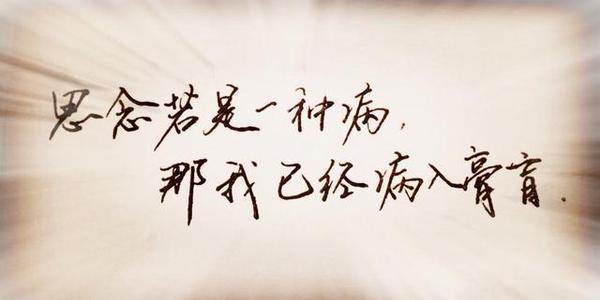 思念若是一种病,
那我已经病入膏肓.